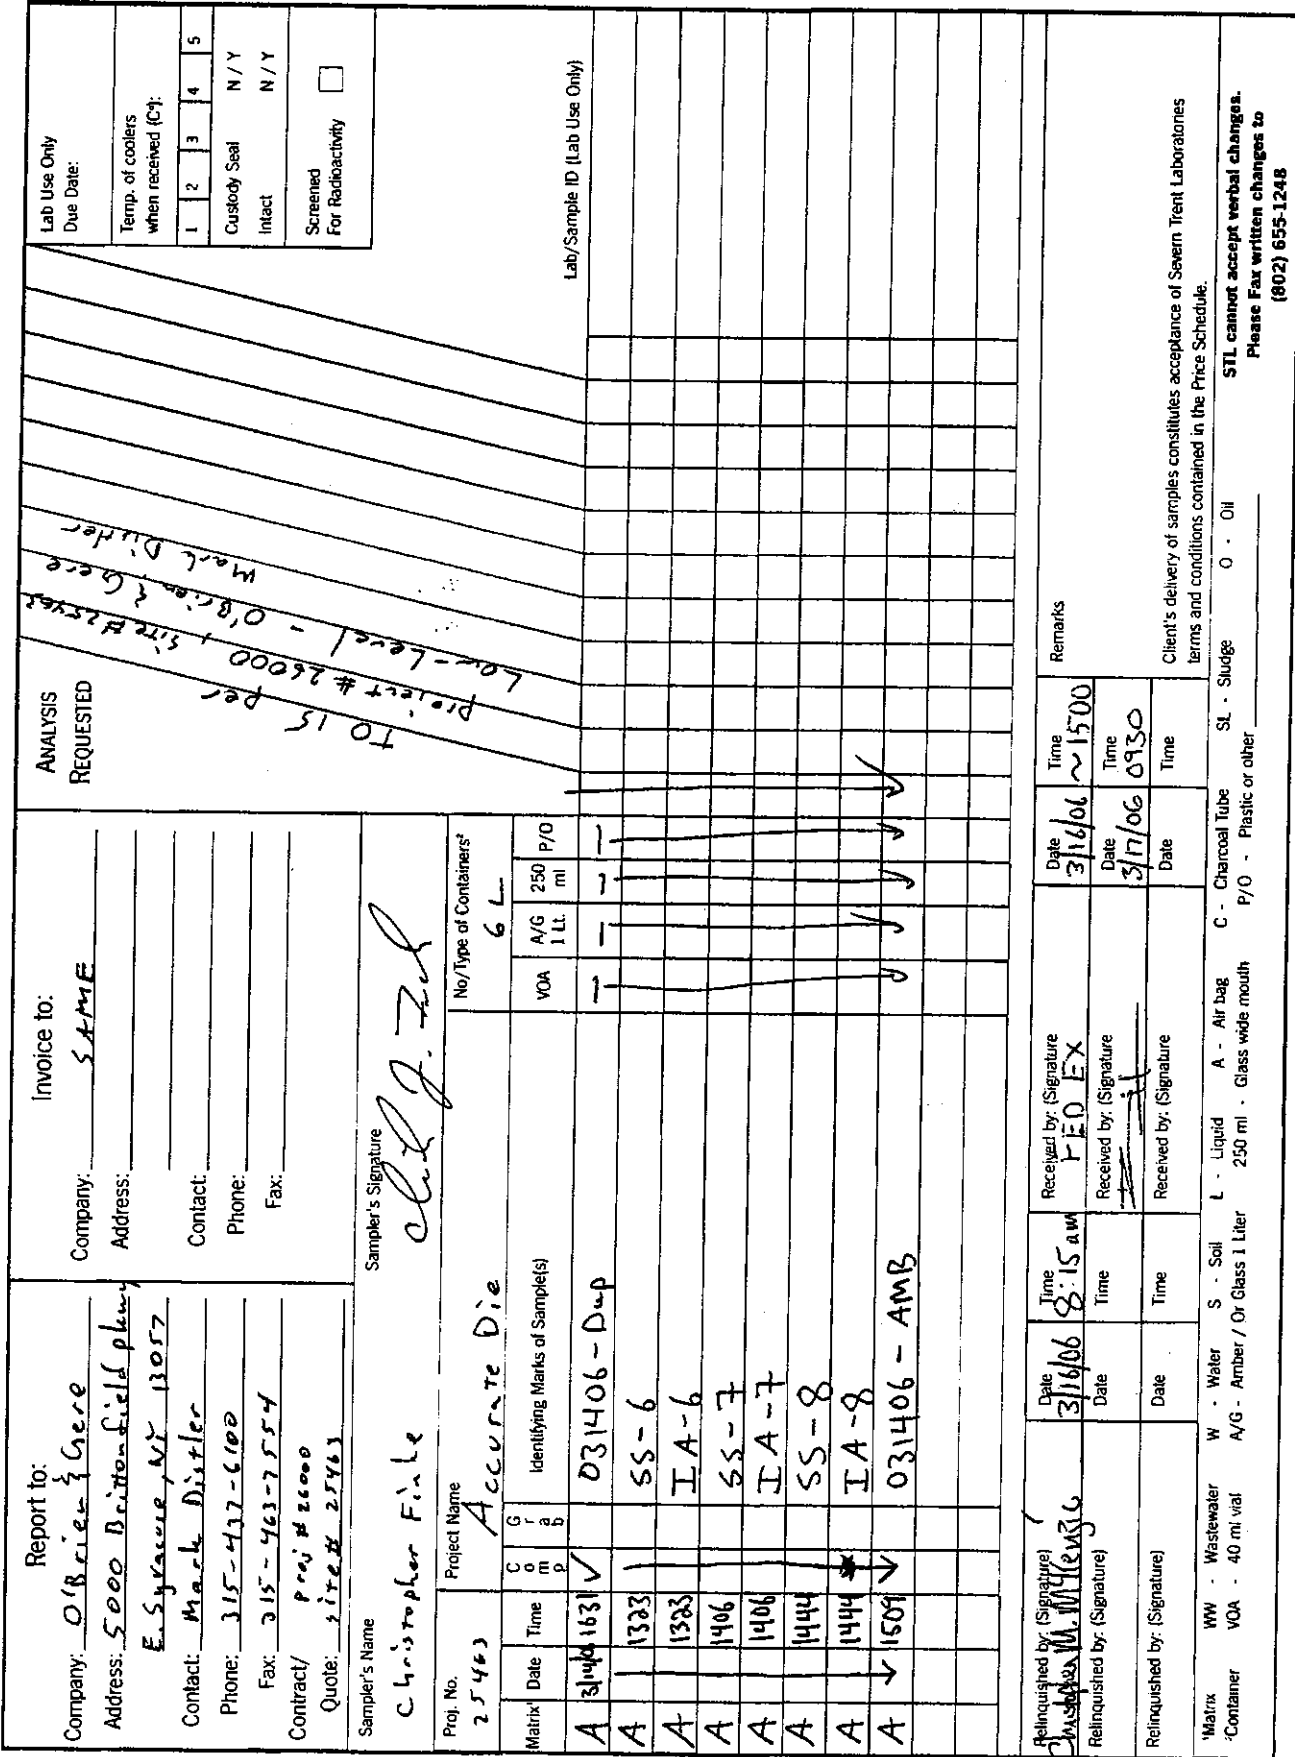 Report to:
Company: O'Brien & Gere
Address: 5000 Brittonfield pkwy
E. Syracuse, NY 13057
Contact: Mark Distler
Phone: 315-437-6100
Fax: 315-463-7554
Contract/ proj # 26000
Quote: site # 25463
Invoice to:
Company: SAME
Address:
Contact:
Phone:
Fax:
ANALYSIS
REQUESTED
TO 15 per
project # 26000, site # 25463
Low-Level - O'Brien & Gere
Mark Distler
Lab Use Only
Due Date:
Temp. of coolers
when received (C°):
1 2 3 4 5
Custody Seal N / Y
Intact N / Y
Screened
For Radioactivity
Sampler's Name
Christopher Finke
Sampler's Signature
Proj. No.
25463
Project Name
Accurate Die
No/Type of Containers²
6 L
Matrix¹ Date Time Comp Grab Identifying Marks of Sample(s) VOA A/G 1 Lt. 250 ml P/O Lab/Sample ID (Lab Use Only)
A 3/14/06 1631 ✓ 031406-Dup
A 1323 SS-6
A 1323 IA-6
A 1406 SS-7
A 1406 IA-7
A 1444 SS-8
A 1444 IA-8
A 1509 031406 - AMB
Relinquished by: (Signature) Date 3/16/06 Time 8:15 am Received by: (Signature FED EX Date 3/16/06 Time ~1500 Remarks
Relinquished by: (Signature) Date Time Received by: (Signature Date 3/17/06 Time 0930
Relinquished by: (Signature) Date Time Received by: (Signature Date Time
Client's delivery of samples constitutes acceptance of Severn Trent Laboratories
terms and conditions contained in the Price Schedule.
¹Matrix WW - Wastewater W - Water S - Soil L - Liquid A - Air bag C - Charcoal Tube SL - Sludge O - Oil
²Container VOA - 40 ml vial A/G - Amber / Or Glass 1 Liter 250 ml - Glass wide mouth P/O - Plastic or other
STL cannot accept verbal changes.
Please Fax written changes to
(802) 655-1248